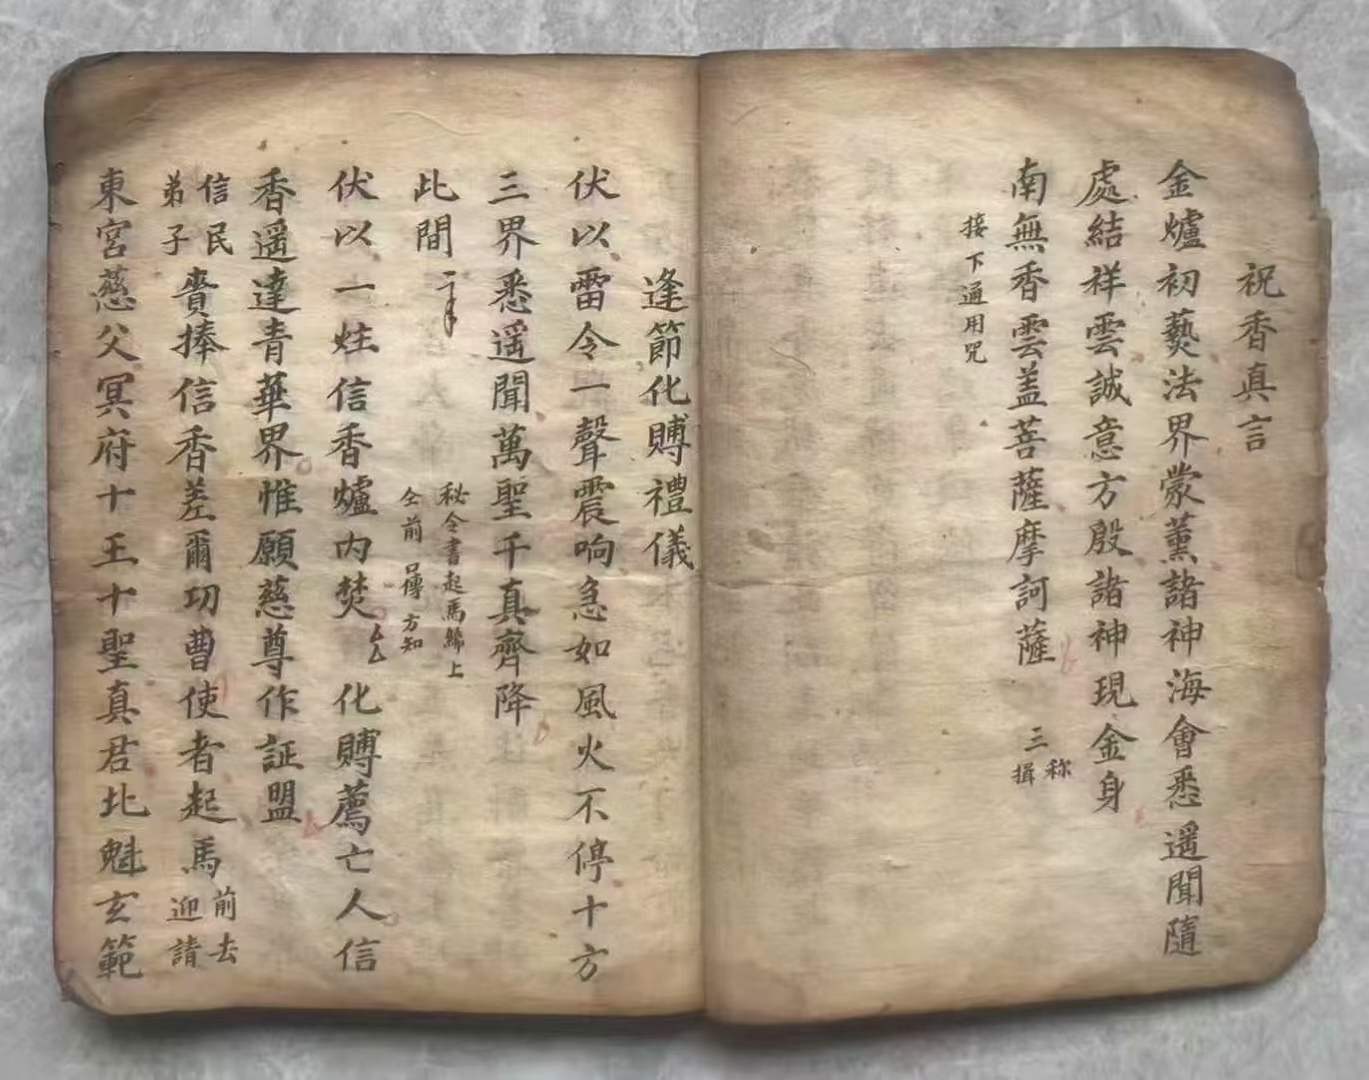 祝香真言
金爐初爇法界蒙薰諸神海會悉遥聞隨
處結祥雲誠意方殷諸神現金身
南無香雲盖菩薩摩訶薩
三稱
揖
接下通用咒
逢節化賻禮儀
伏以雷令一聲震响急如風火不停十方
三界悉遥聞萬聖千真齊降
此間
秘令書起馬
上
仝前口傳方知
伏以一炷信香爐内焚
化賻薦亡人信
香遥達青華界惟願慈尊作証盟
信民
弟子
賫捧信香差爾功曹使者起馬
前去
迎請
東宮慈父冥府十王十聖真君北魁玄範